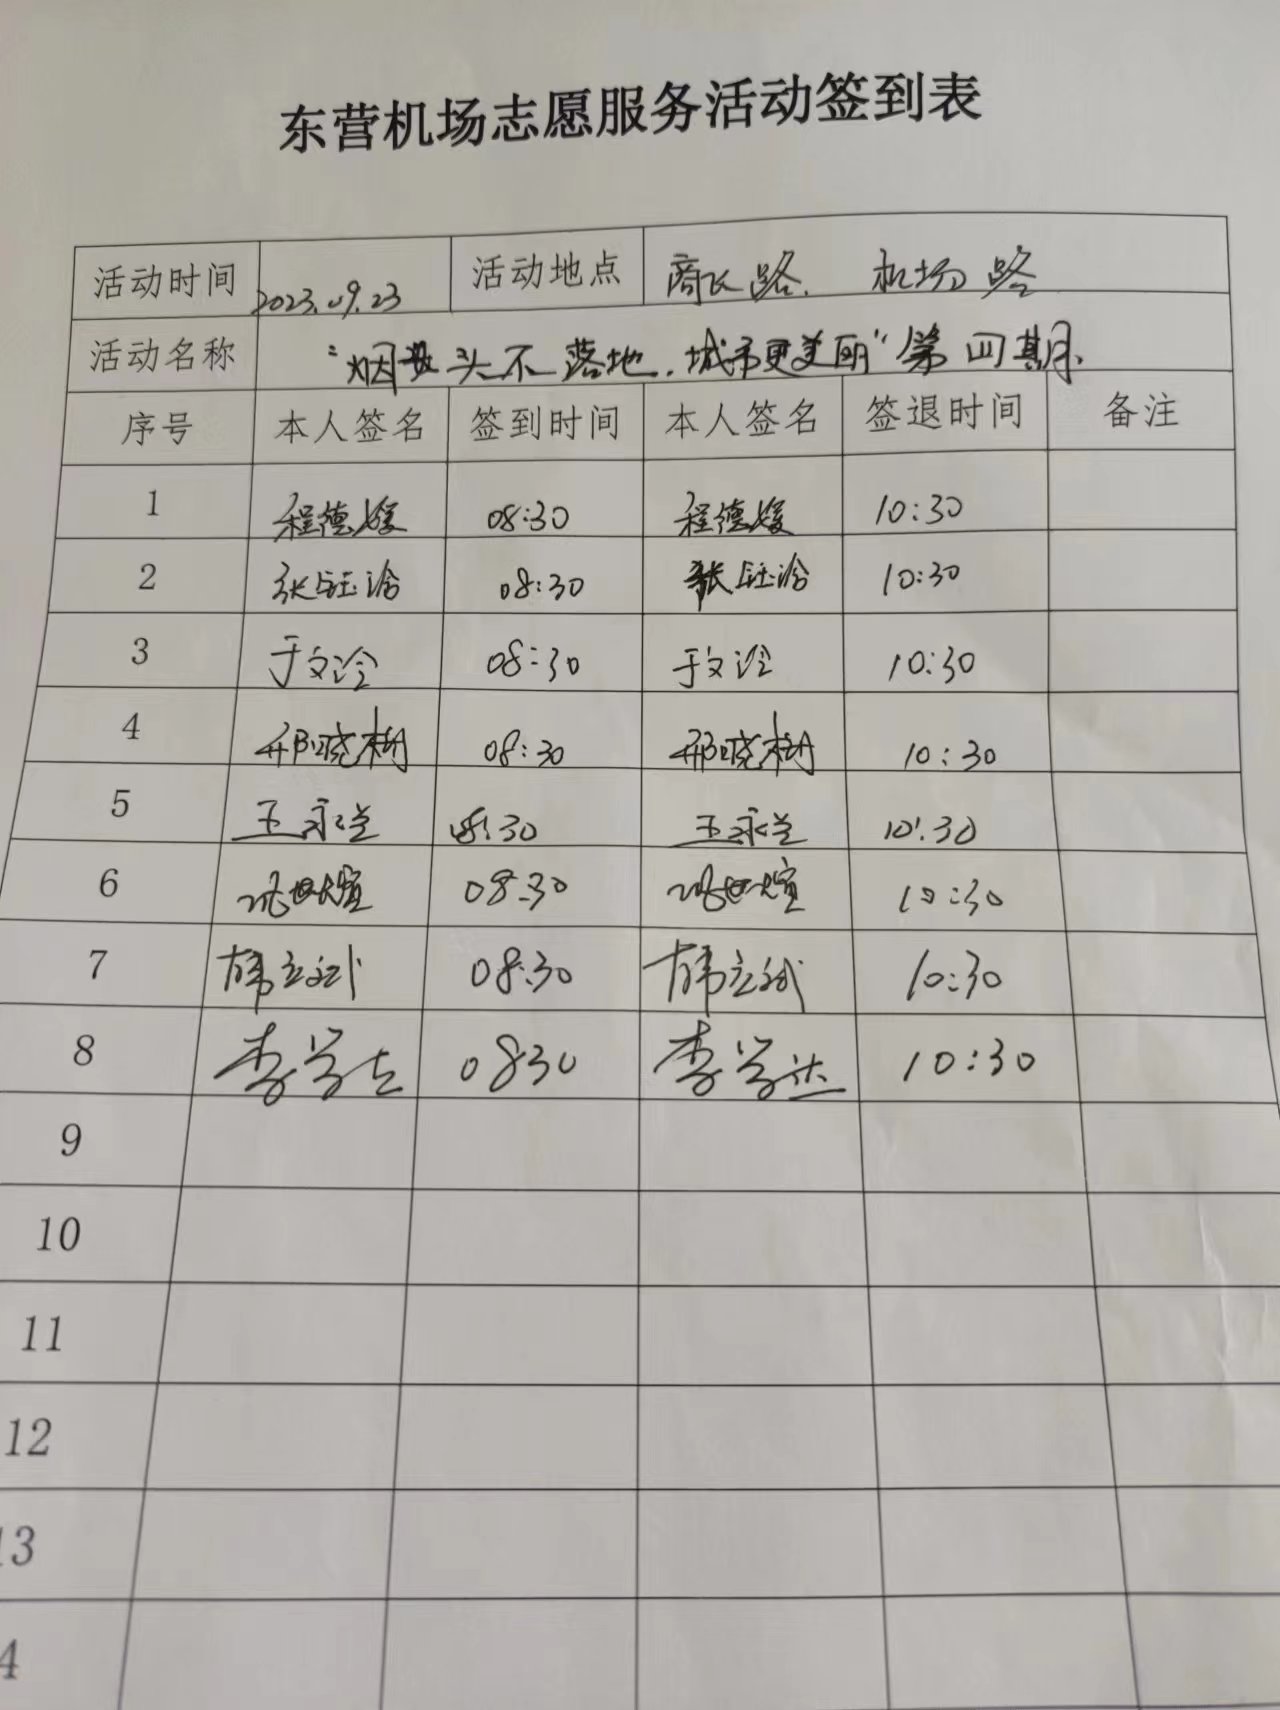 东营机场志愿服务活动签到表
活动时间 2023.09.23 活动地点 商长路. 机场路
活动名称 "烟头不落地.城市更美丽"第四期.
序号 本人签名 签到时间 本人签名 签退时间 备注
1 程德媛 08:30 程德媛 10:30
2 张钰涵 08:30 张钰涵 10:30
3 于文泠 08:30 于文泠 10:30
4 邢晓树 08:30 邢晓树 10:30
5 王永兰 08:30 王永兰 10:30
6 08:30 10:30
7 韩立斌 08:30 韩立斌 10:30
8 李学达 0830 李学达 10:30
9
10
11
12
13
4